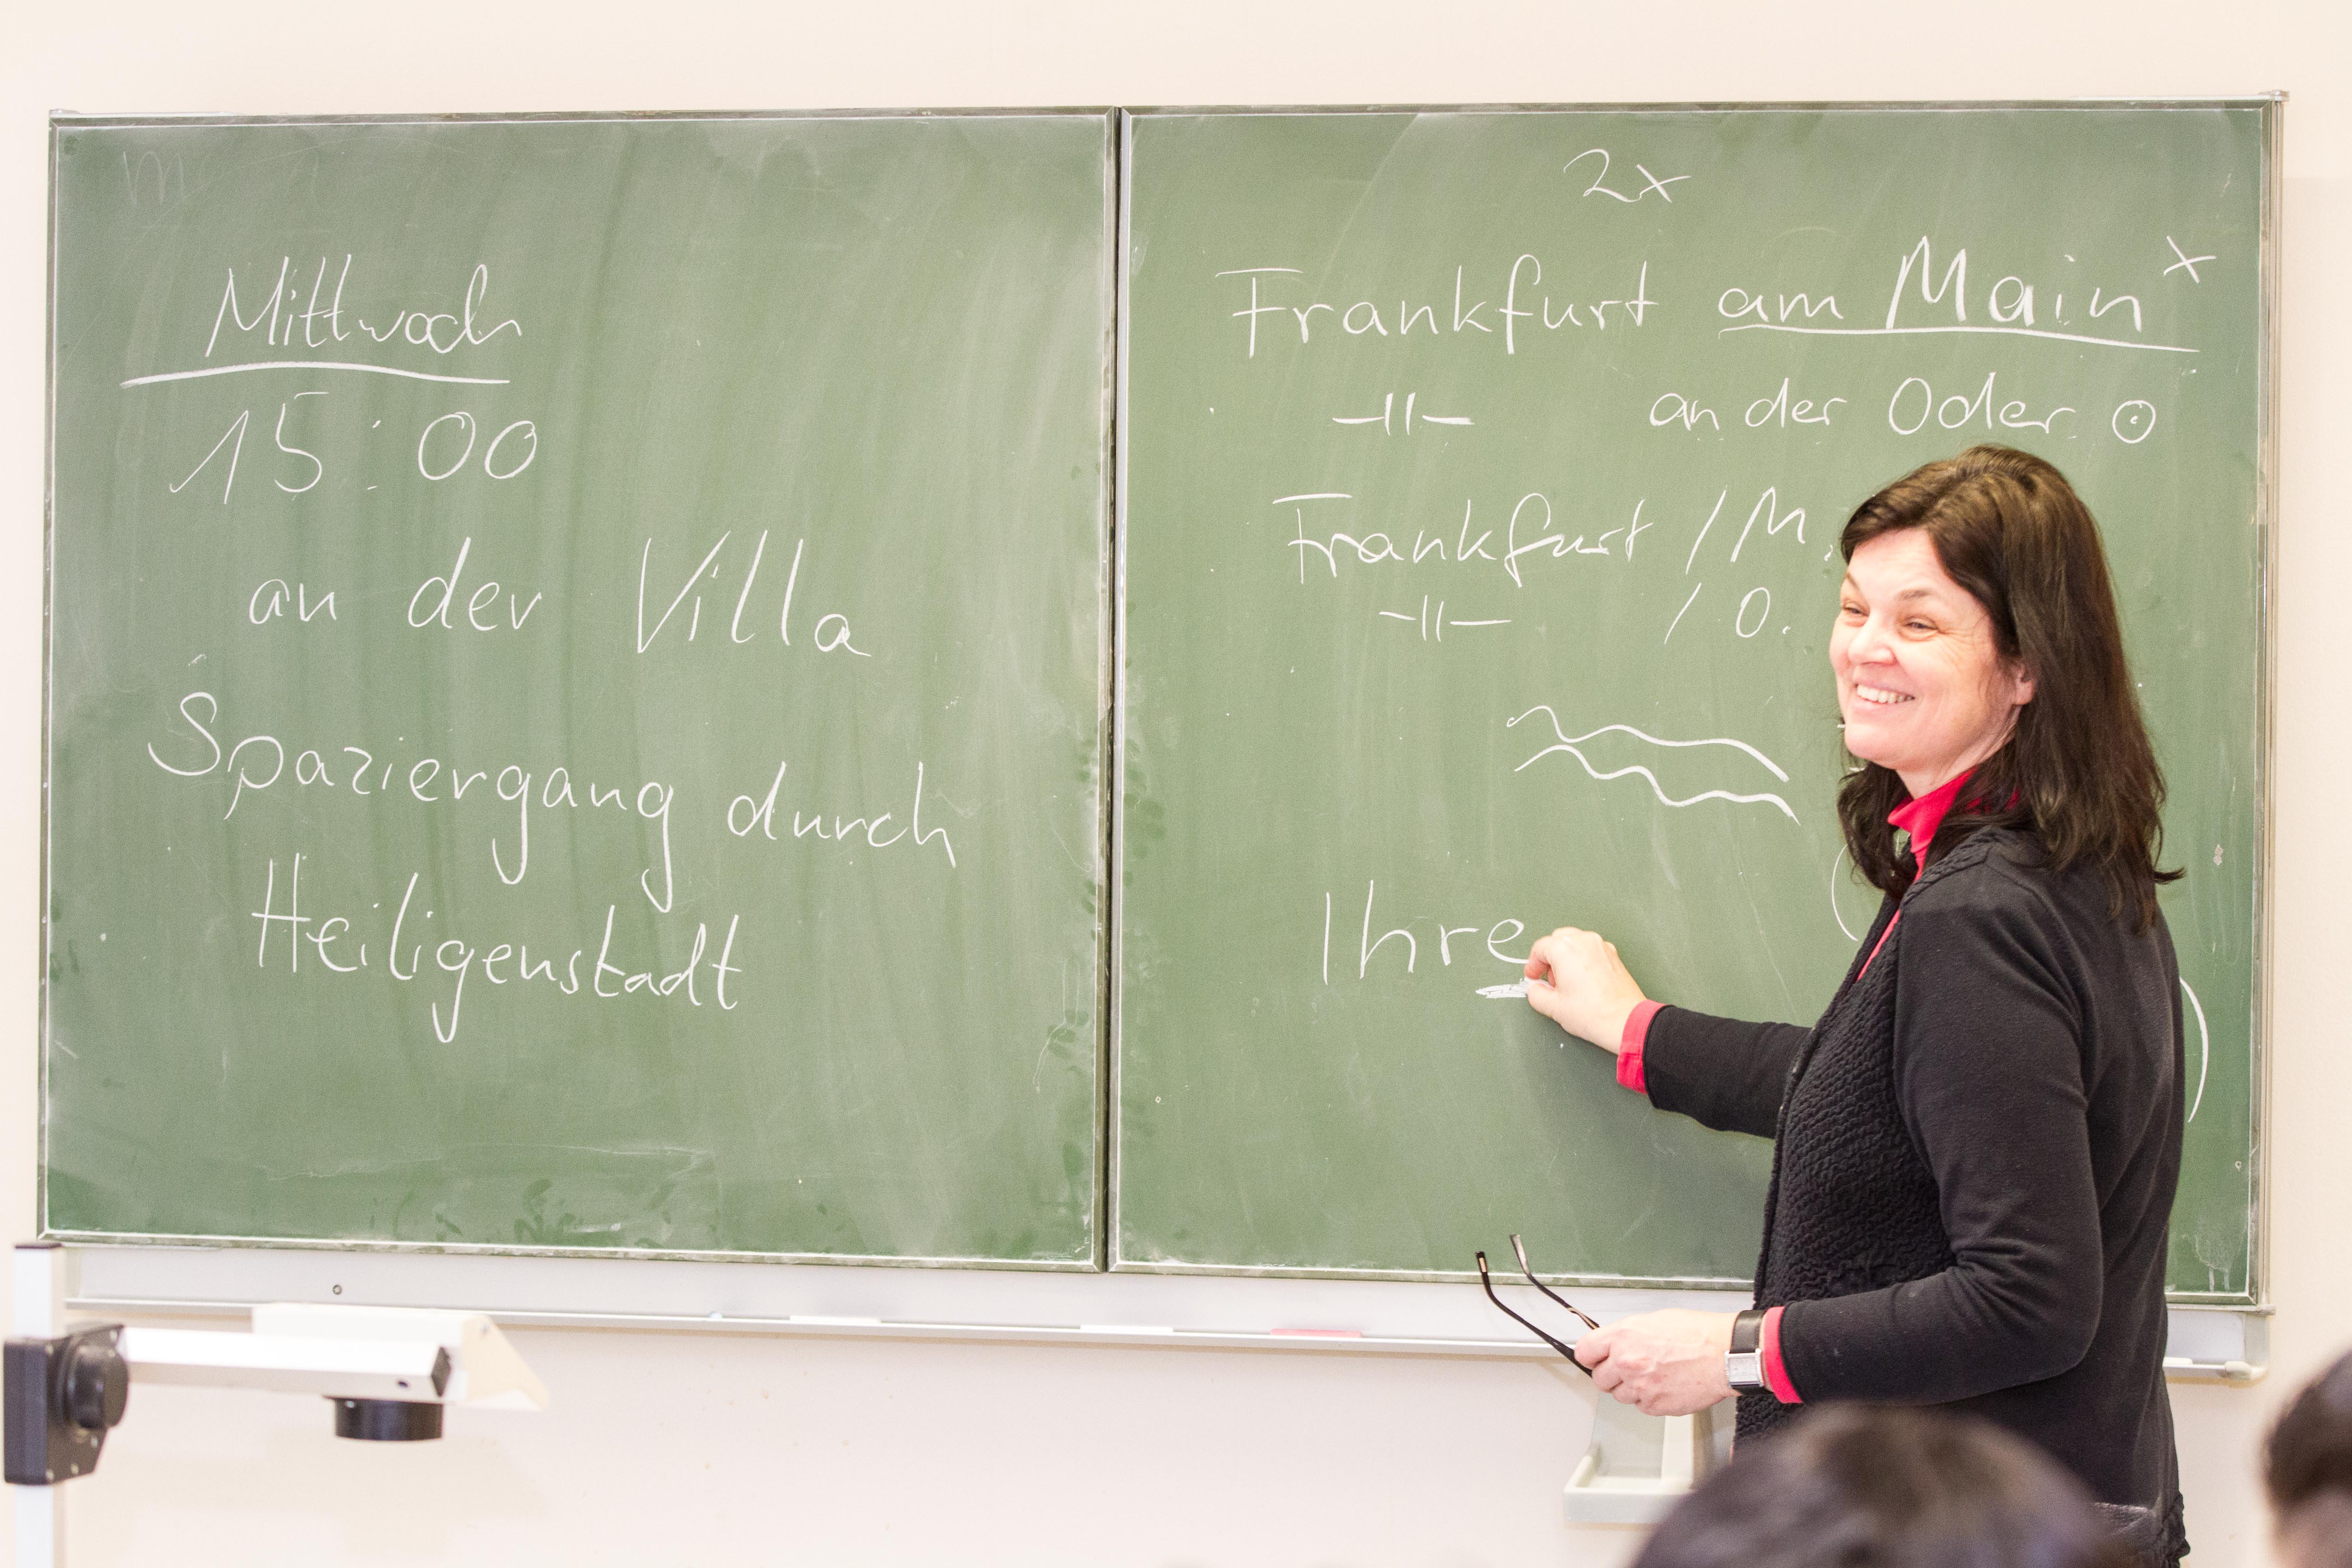 Mittwoch
15:00
an der Villa
Spaziergang durch
Heiligenstadt
2x
Frankfurt am Main x
-||- an der Oder
Frankfurt / M.
-||- / O.
Ihre
( )